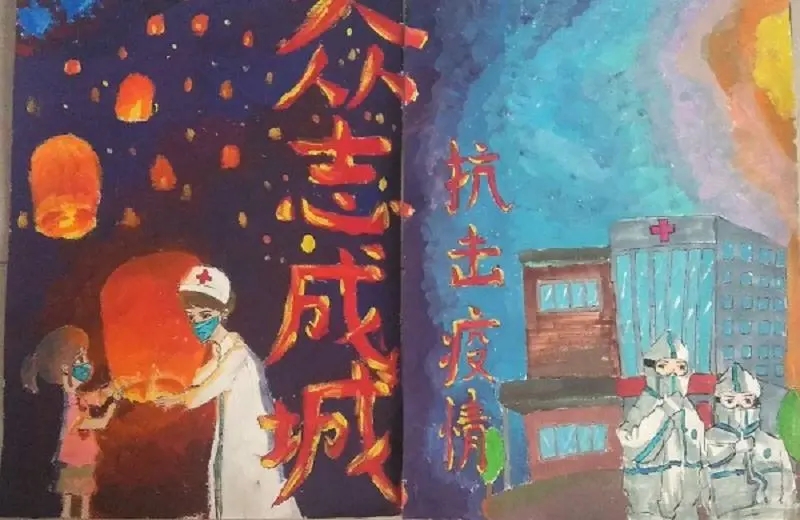 众志成城
抗击疫情